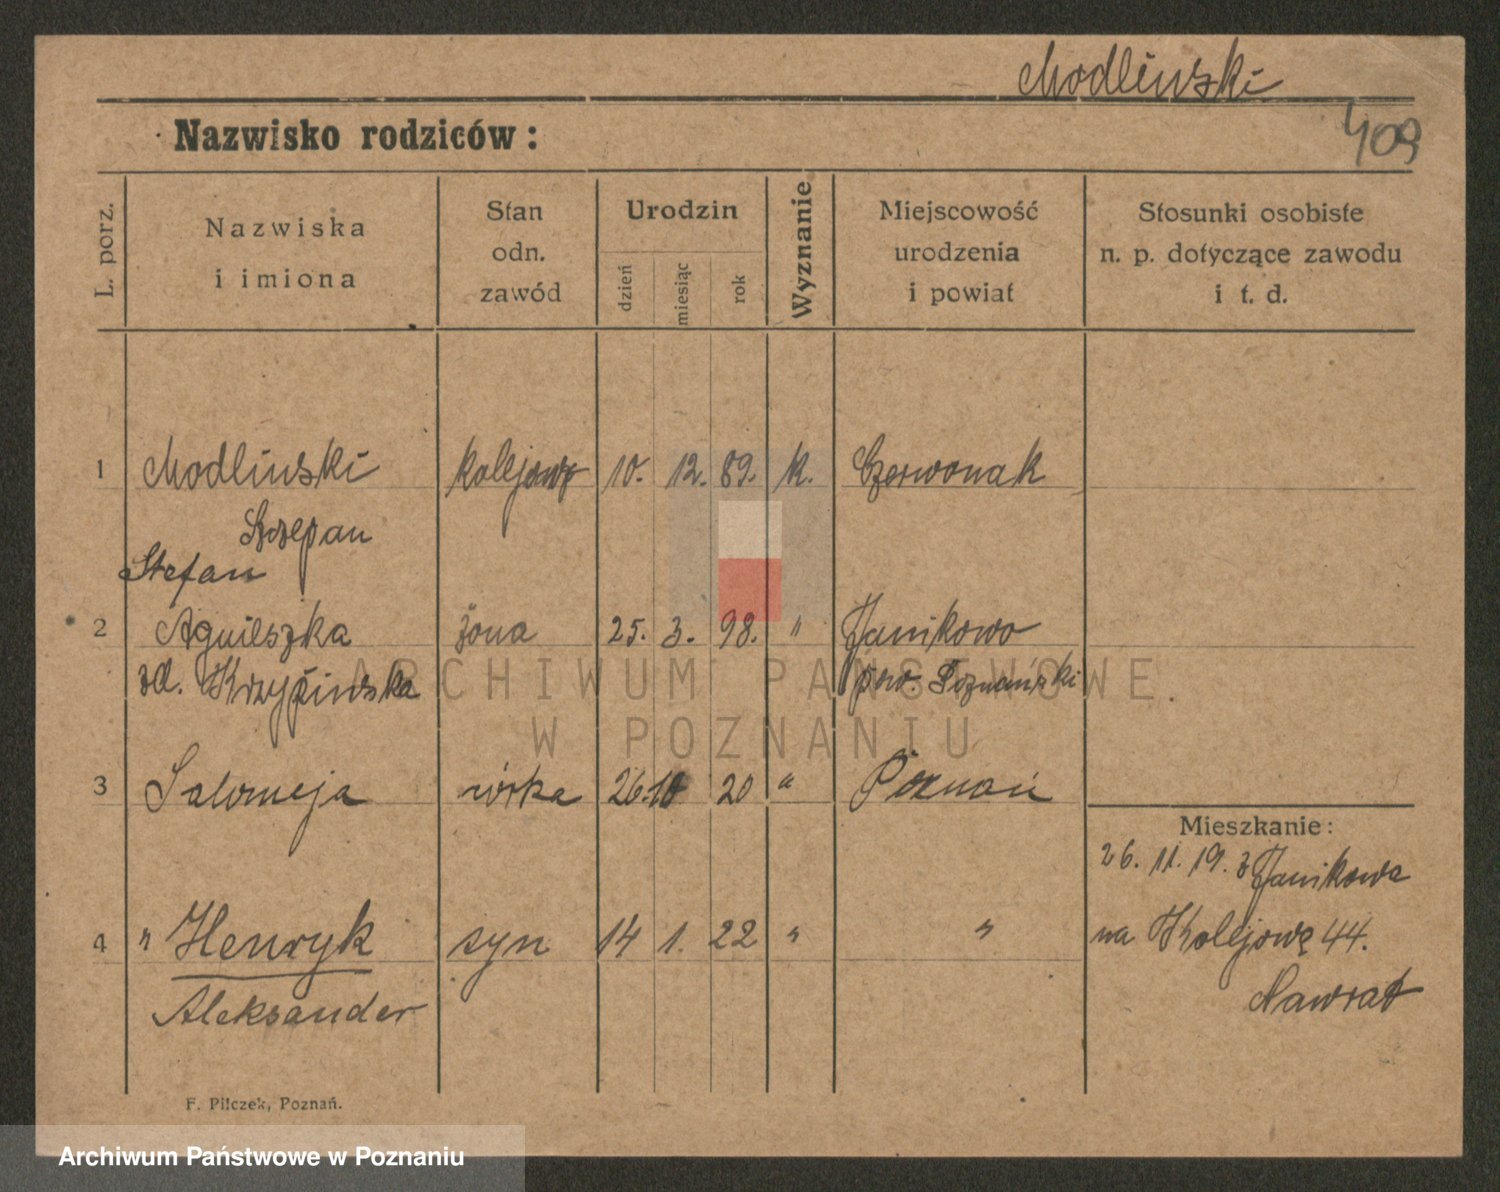 Modlinski
Nazwisko rodziców:
409
L. porz.
Nazwiska
i imiona
Stan
odn.
zawód
Urodzin
dzień
miesiąc
rok
Wyznanie
Miejscowość
urodzenia
i powiat
Stosunki osobiste
n. p. dotyczące zawodu
i t. d.
1 Modlinski kolejowy 10. 12. 89. k. Czerwonak
Szczepan
Stefan
2 Agnieszka żona 25. 3. 98. " Janikowo
zd. pow. Poznański
ARCHIWUM PAŃSTWOWE
W POZNANIU
3 Salomeja córka 26. 10 20 " Poznań
Mieszkanie:
26. 11. 19. z Janikowa
4 " Henryk syn 14 1. 22 " "
na Kolejową 44.
Aleksander
Nawrat
F. Pilczek, Poznań.
Archiwum Państwowe w Poznaniu